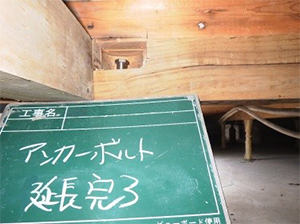 工事名
アンカーボルト
延長完了
ビューボード使用